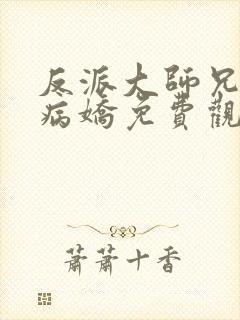 反派大師兄
病嬌免費觀
蕭蕭十香